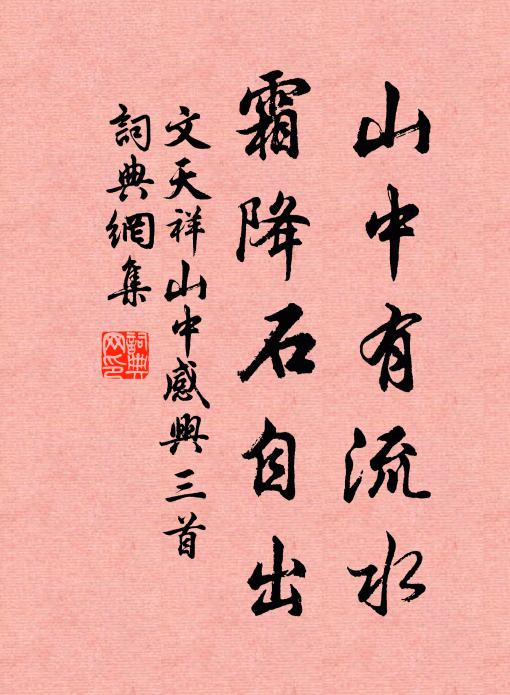 山中有流水
霜降石自出
文天祥山中感興三首
詞典網集
詞典網印